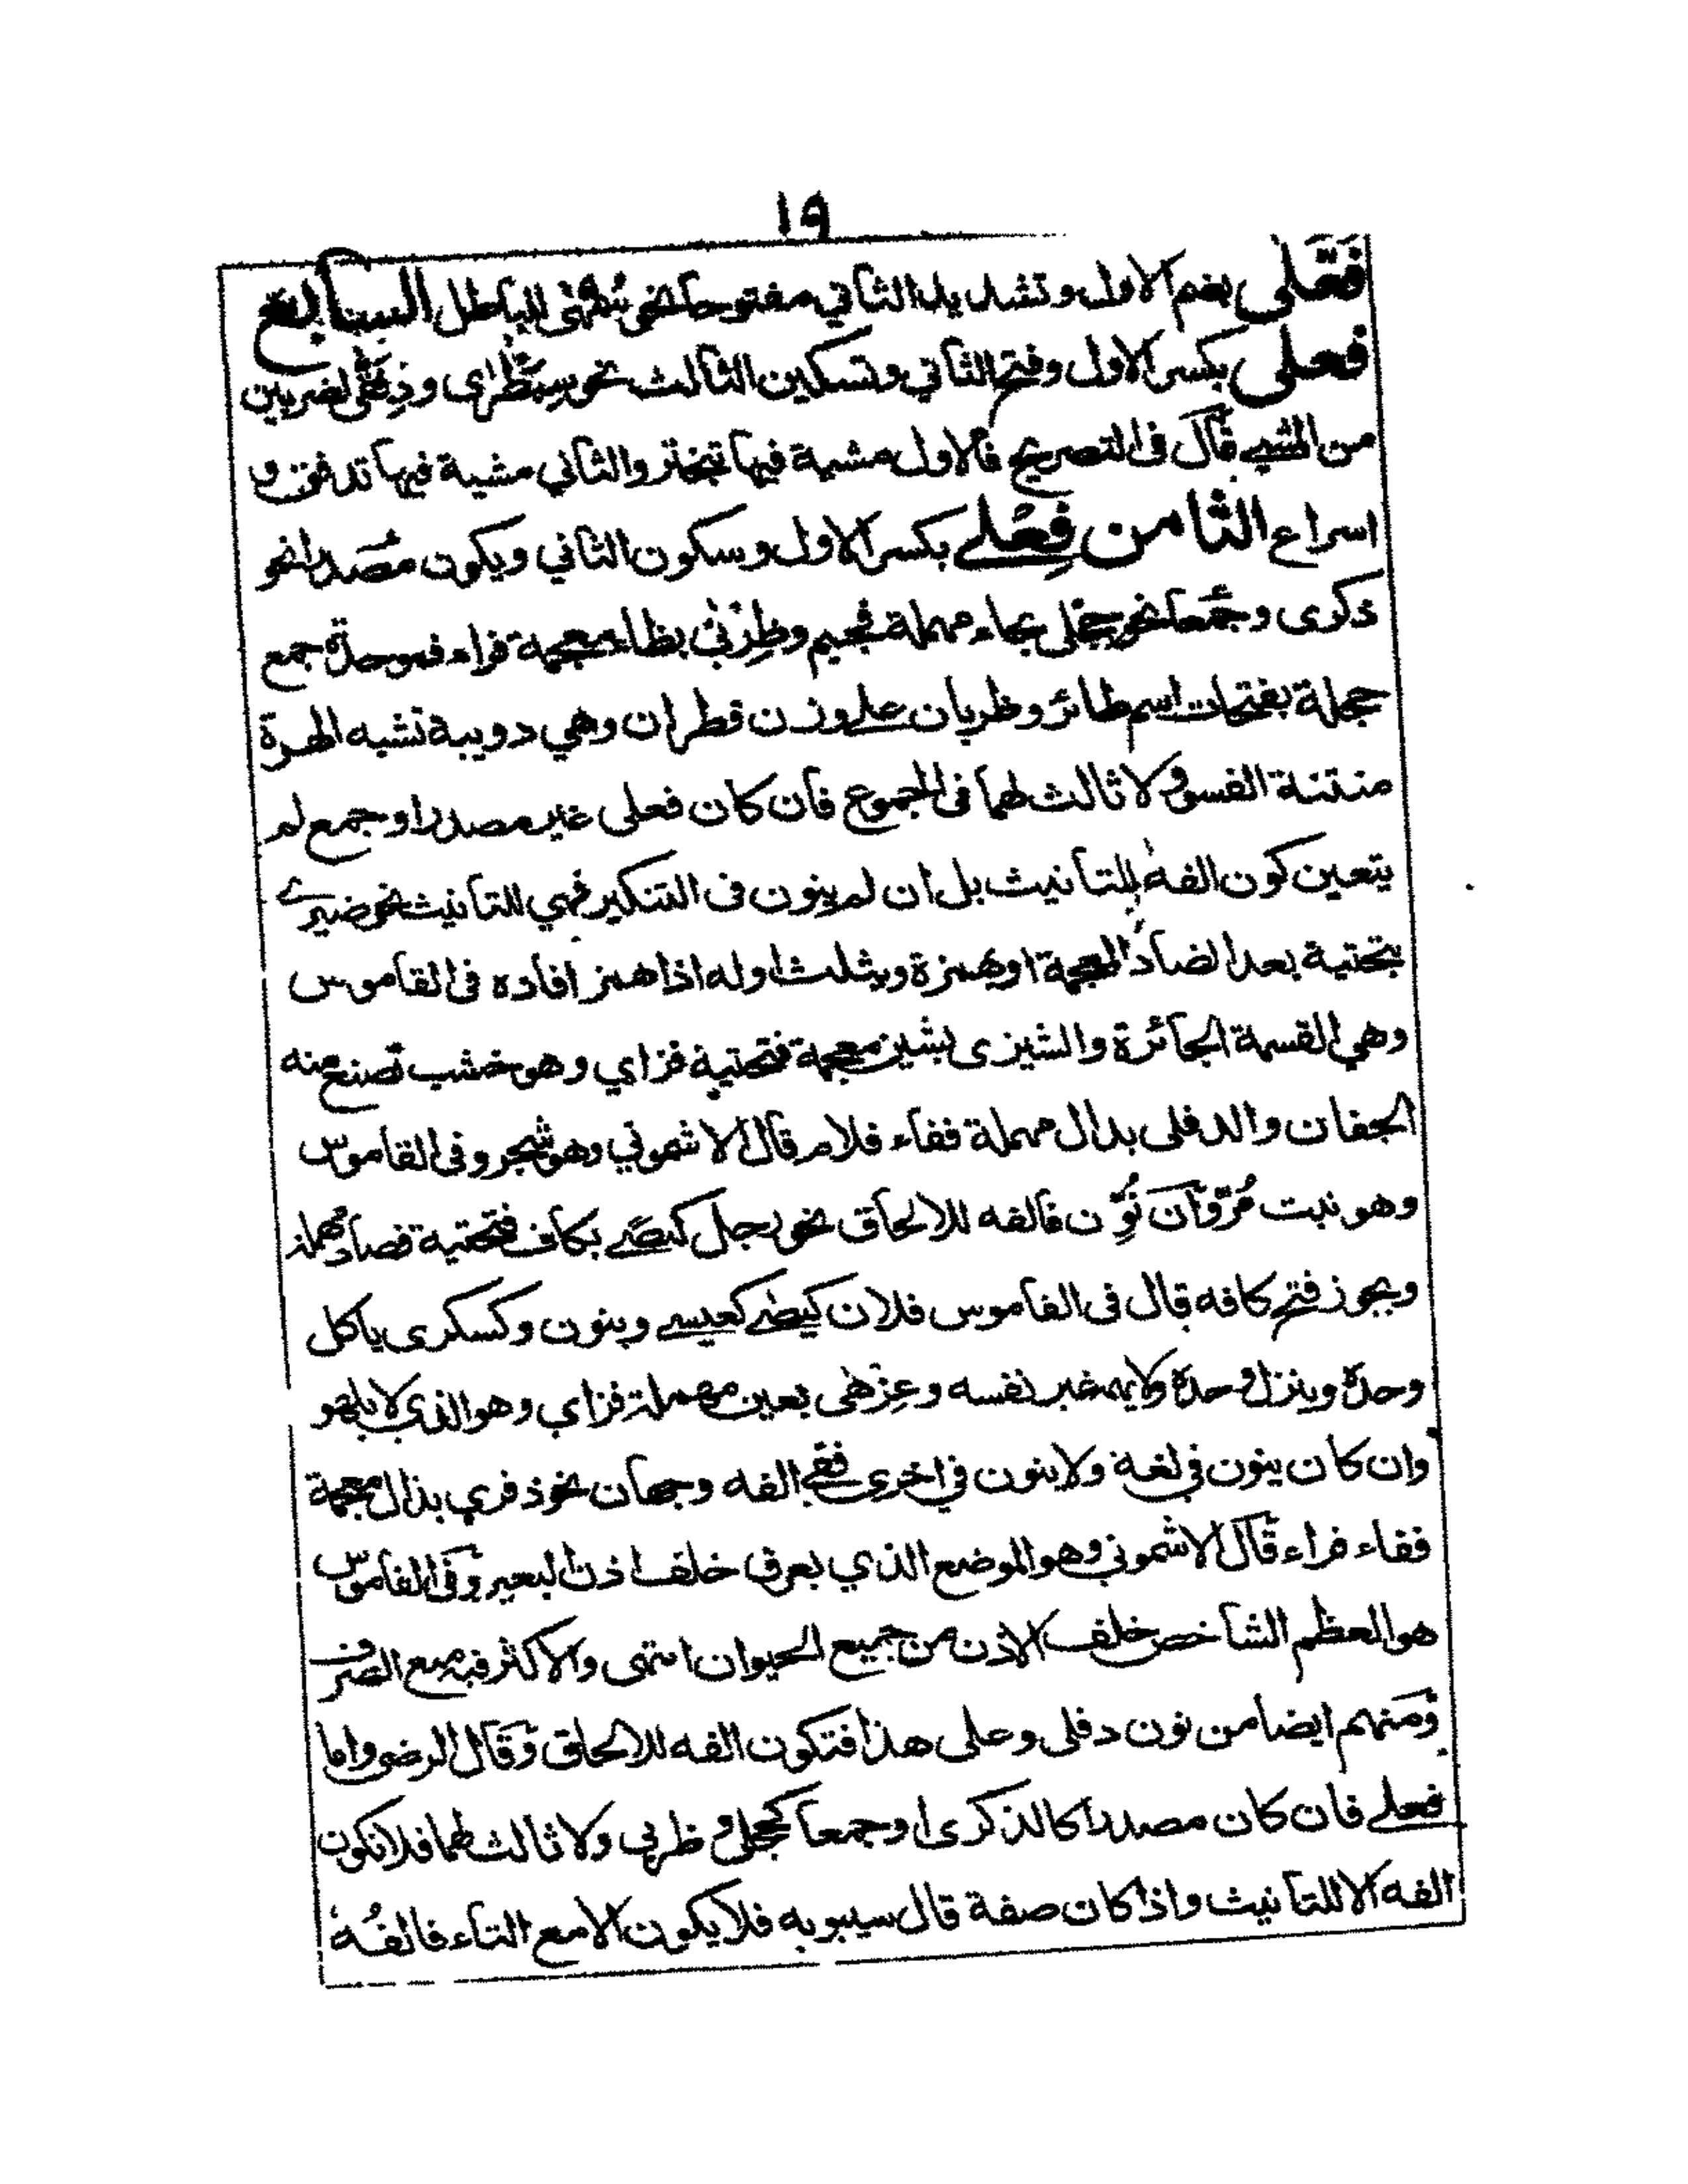 ١٩
فُعَّلى بضم الاول وتشديد الثاني مفتوحا نحو سُمَّهى للباطل السابع
فعلى بكسر الاول وفتح الثاني وتسكين الثالث نحو سِبَطْرى ودِفَقَّى لضربين
من المشي قال فى التصريح فالاول مشية فيها تبختر والثاني مشية فيها تدفق و
اسراع الثامن فِعْلے بكسر الاول وسكون الثاني ويكون مصدرا نحو
ذكرى وجمعا نحو حجلى بحاء مهملة فجيم وظِرْبٰى بظاء معجمة فراء فموحدة جمع
حجلة بفتحات اسم طائر وظربان علے وزن قطران وهي دويبة تشبه الهرة
منتنة الفسو ولا ثالث لهما فى الجموع فان كان فعلى غير مصدر او جمع لم
يتعين كون الفه للتانيث بل ان لم ينون فى التنكير فهي للتانيث نحو ضيزے
بتحتية بعد الضاد المعجمة او بهمزة ويثلث اوله اذا همز افاده فى القاموس
وهي القسمة الجائرة والشيزى بشين معجمة فتحتية فزاي وهو خشب تصنع منه
الجفان والدفلى بدال مهملة ففاء فلام قال الاشموني وهو شجر وفى القاموس
وهو نبت مُرّ وان نُوِّن فالفه للالحاق نحو رجل كيصے بكاف فتحتية فصاد مهملة
ويجوز فتح كافه قال فى القاموس فلان كيصے كعيسے وينون وكسكرى ياكل
وحدة وينزل وحدة ولا يهمه غير نفسه وعِزْهٰى بعين مهملة فزاي وهو الذي لا يلهو
وان كان ينون في لغة ولا ينون في اخرى ففے الفه وجهان نحو ذفري بذال معجمة
ففاء فراء قال الاشموني وهو الموضع الذي يعرق خلف اذن البعير وفى القاموس
هو العظم الشاخص خلف الاذن من جميع الحيوان انتهى والاكثر فيه منع الصرف
ومنهم ايضا من نون دفلى وعلى هذا فتكون الفه للالحاق وقال الرضي واما
فعلے فان كان مصدرا كالذكرى او جمعا كحجلى وظربى ولا ثالث لهما فلا تكون
الفه الا للتانيث واذا كان صفة قال سيبويه فلا يكون الا مع التاء فالفُهٗ